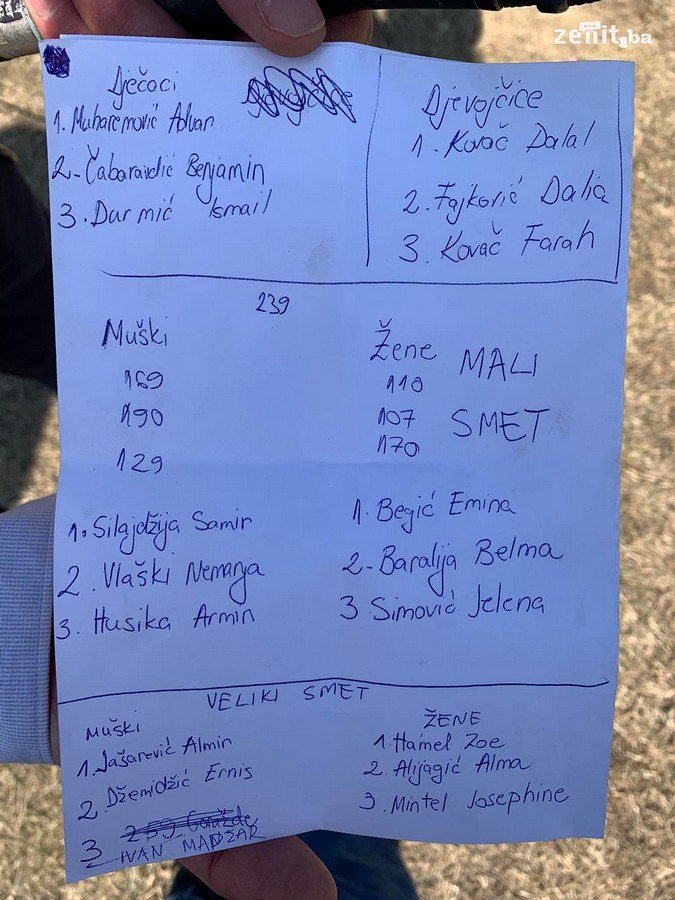 zenit.ba
Dječaci
1. Muharemović Advan
2. Čabaravdić Benjamin
3. Durmić Ismail
Djevojčice
1. Kovač Dalal
2. Fajković Dalia
3. Kovač Farah
239
Muški
169
190
129
Žene
110
107
170
MALI
SMET
1. Silajdžija Samir
2. Vlaški Nemanja
3. Husika Armin
1. Begić Emina
2. Baralija Belma
3. Simović Jelena
VELIKI SMET
MUŠKI
1. Jašarević Almin
2. Džemidžić Ernis
3
259 Goražde
IVAN MADŽAR
ŽENE
1. Hamel Zoe
2. Alijagić Alma
3. Mintel Josephine